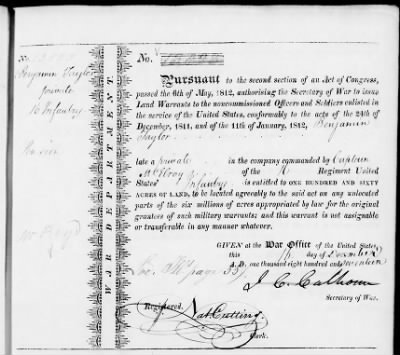 No.
Benjamin Taylor
private
16 Infantry
WAR DEPARTMENT.
No.
Pursuant to the second section of an Act of Congress,
passed the 6th of May, 1812, authorising the Secretary of War to issue
Land Warrants to the noncommissioned Officers and Soldiers enlisted in
the service of the United States, conformably to the acts of the 24th of
December, 1811, and of the 11th of January, 1812, Benjamin
Taylor
late a private in the company commanded by Captain
McElroy of the 16 Regiment United
States' Infantry is entitled to ONE HUNDRED AND SIXTY
ACRES OF LAND, to be located agreeably to the said act on any unlocated
parts of the six millions of acres appropriated by law for the original
grantees of such military warrants; and this warrant is not assignable
or transferable in any manner whatever.
GIVEN at the War Office of the United States,
this day of December
A. D. one thousand eight hundred and seventeen
page 35
J. C. Calhoun
Secretary of War.
Registered.
Nat Cutting
Clerk.